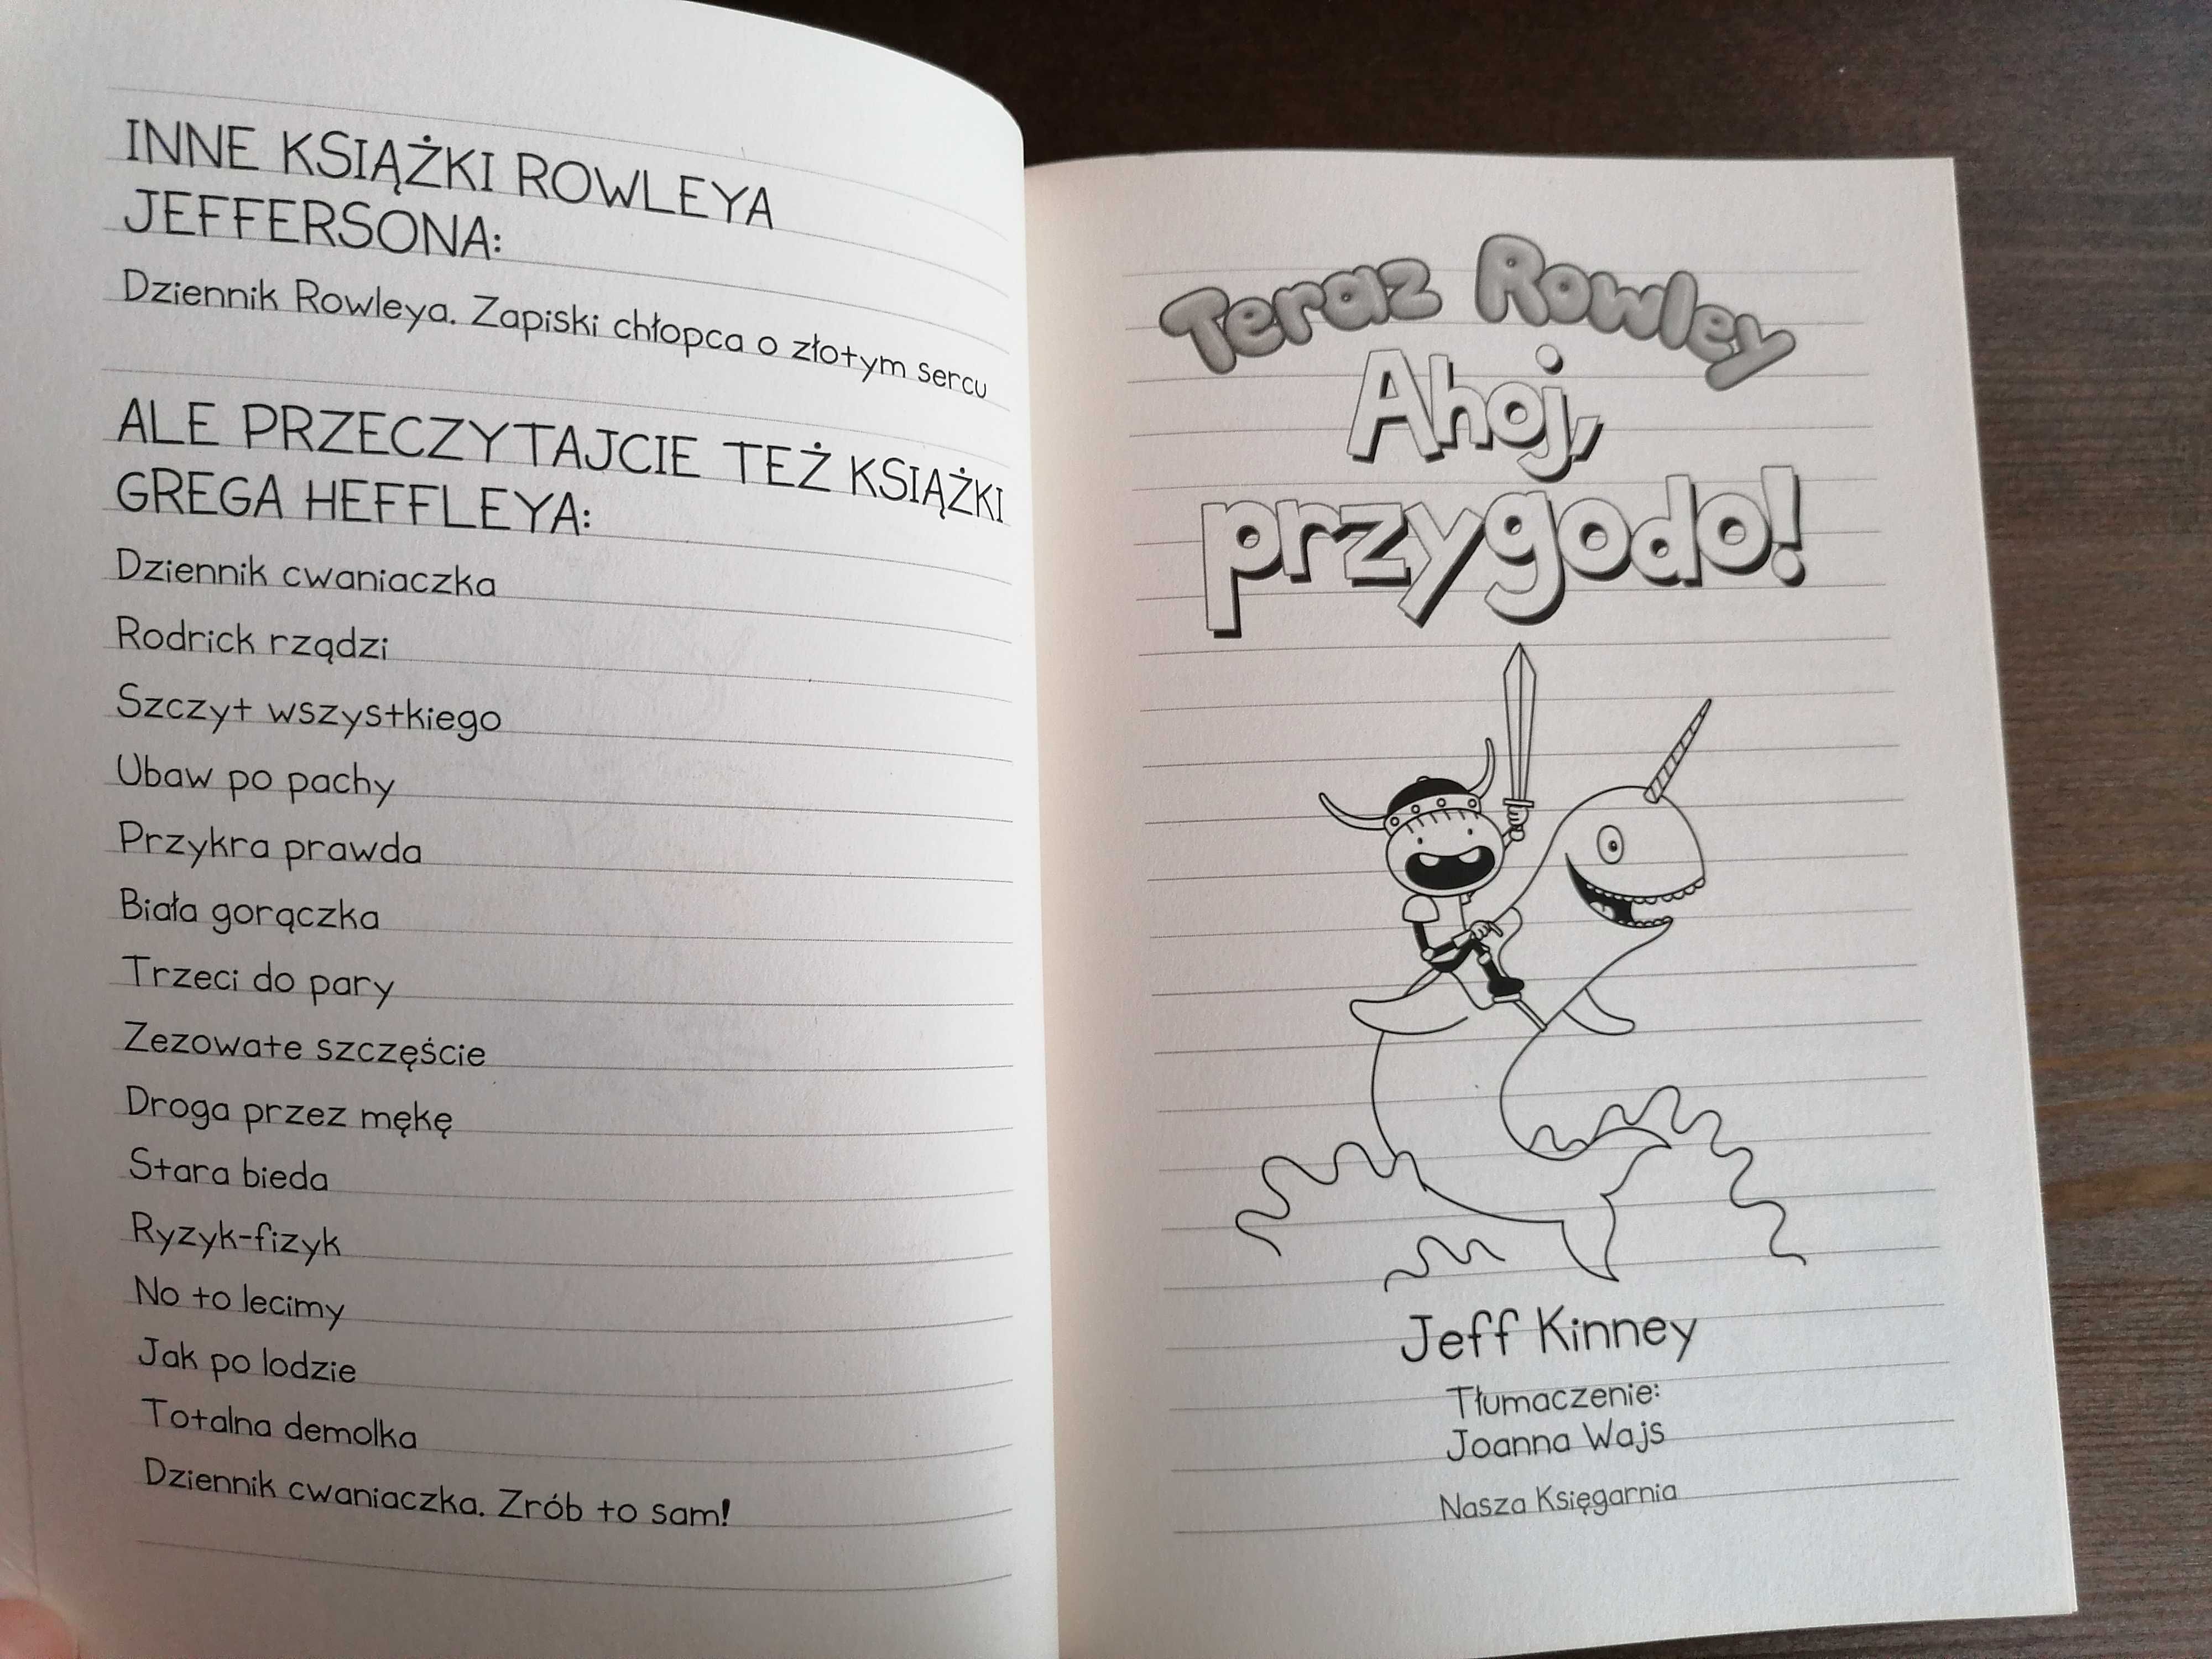 INNE KSIĄŻKI ROWLEYA
JEFFERSONA:
Dziennik Rowleya. Zapiski chłopca o złotym sercu
ALE PRZECZYTAJCIE TEŻ KSIĄŻKI
GREGA HEFFLEYA:
Dziennik cwaniaczka
Rodrick rządzi
Szczyt wszystkiego
Ubaw po pachy
Przykra prawda
Biała gorączka
Trzeci do pary
Zezowate szczęście
Droga przez mękę
Stara bieda
Ryzyk-fizyk
No to lecimy
Jak po lodzie
Totalna demolka
Dziennik cwaniaczka. Zrób to sam!
Teraz Rowley
Ahoj,
przygodo!
Jeff Kinney
Tłumaczenie:
Joanna Wajs
Nasza Księgarnia